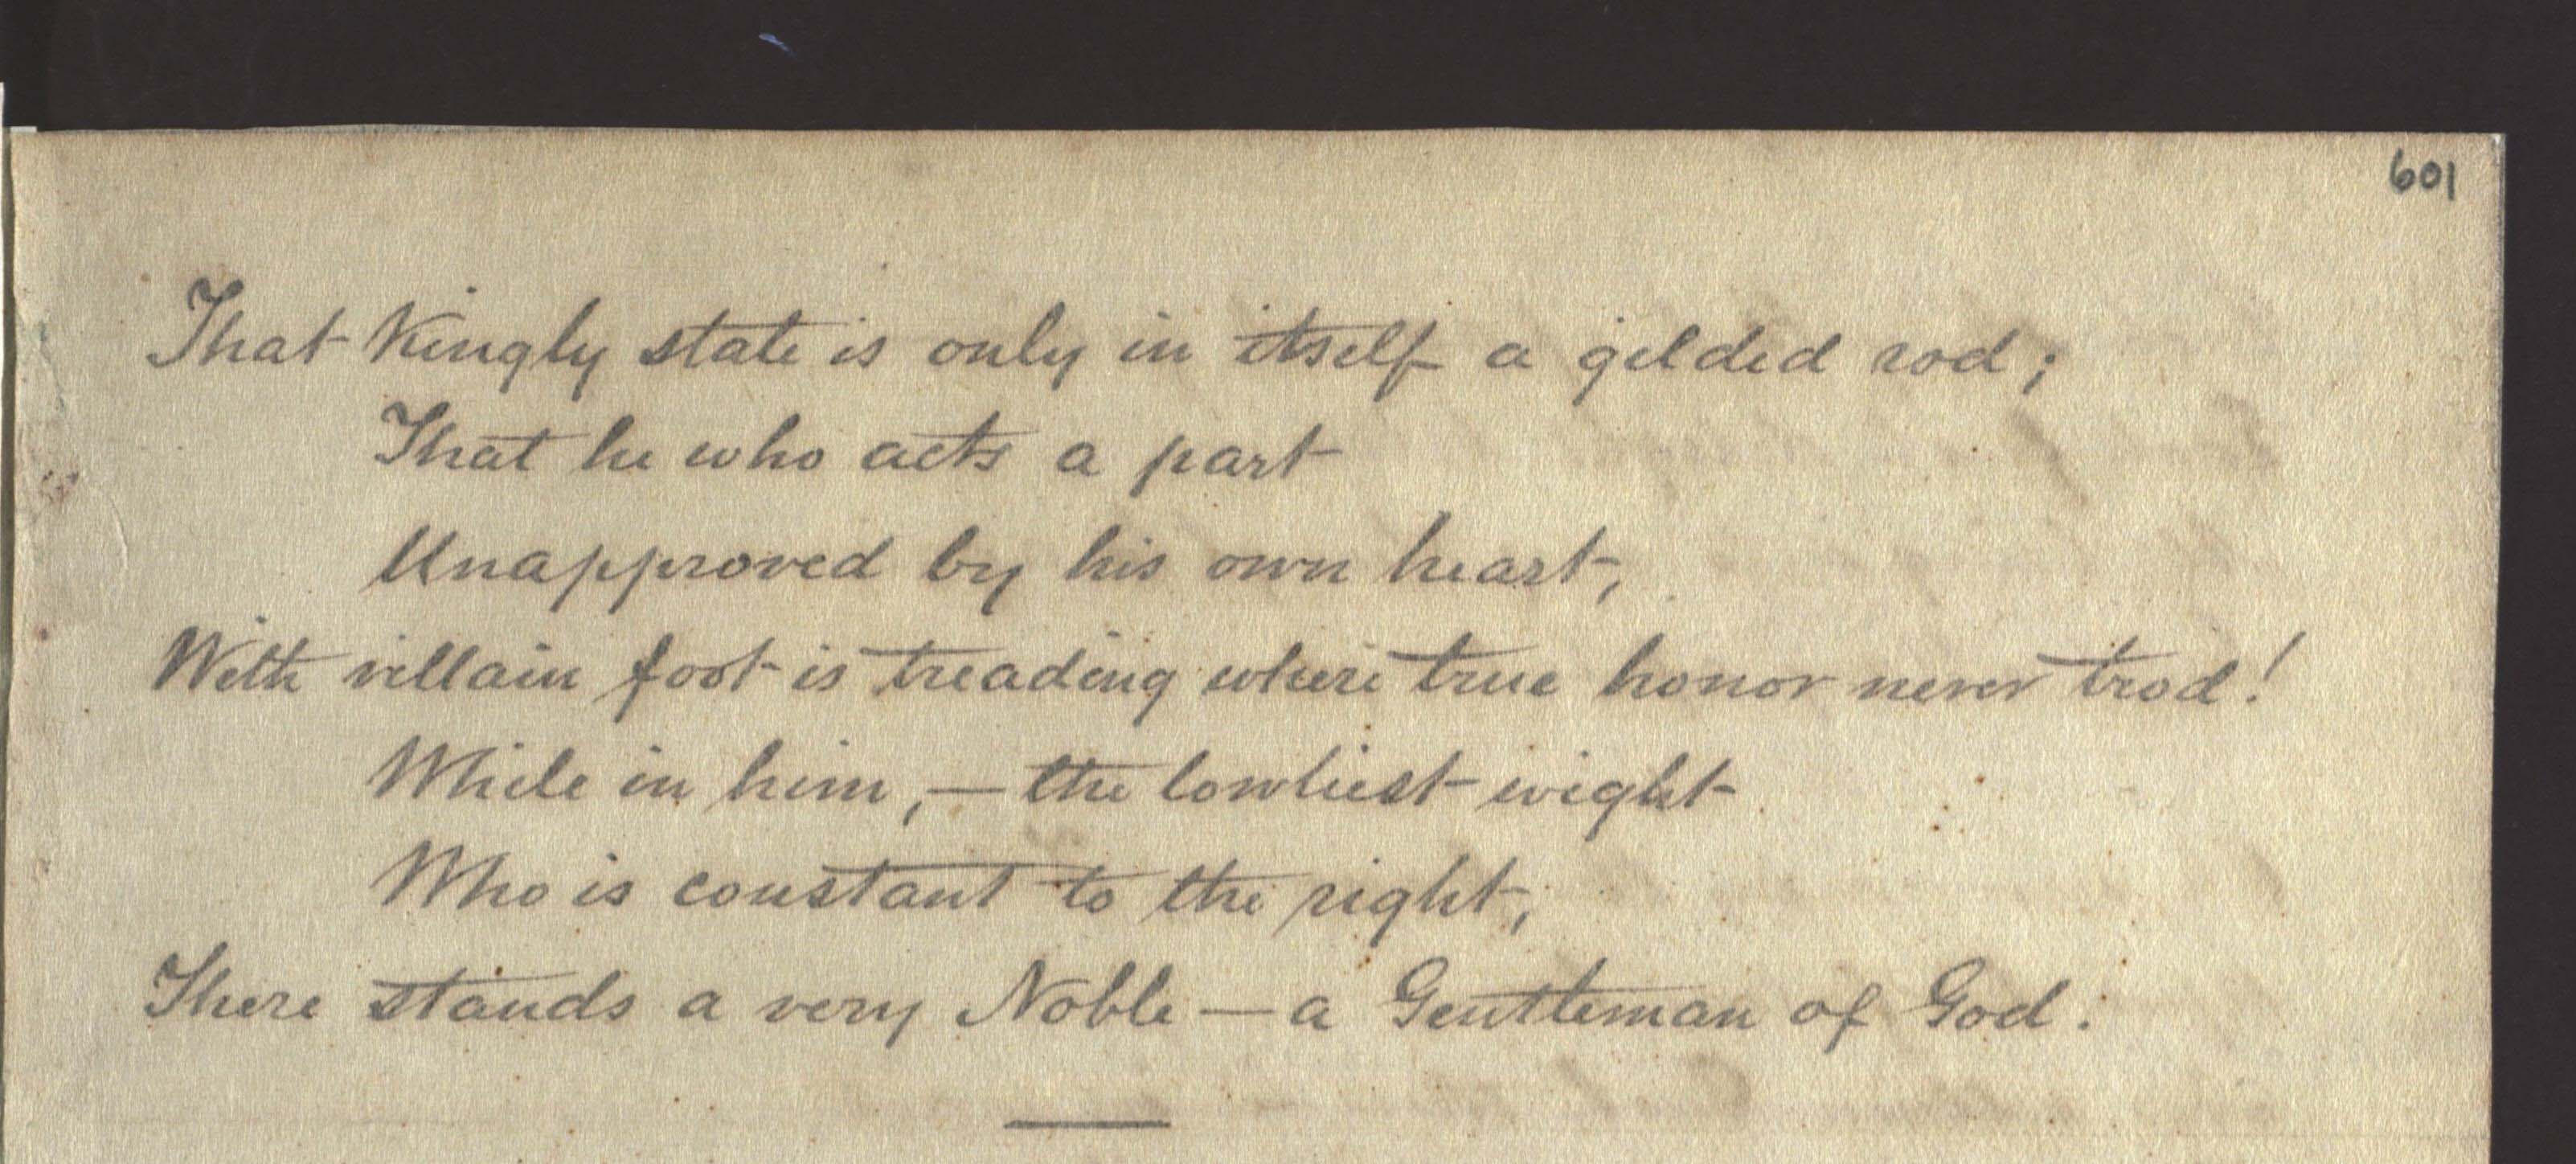 601
That Kingly state is only in itself a gilded rod;
That he who acts a part
Unapproved by his own heart,
With villain foot is treading where true honor never trod!
While in him,—the lowliest wight
Who is constant to the right,
There stands a very Noble—a Gentleman of God.